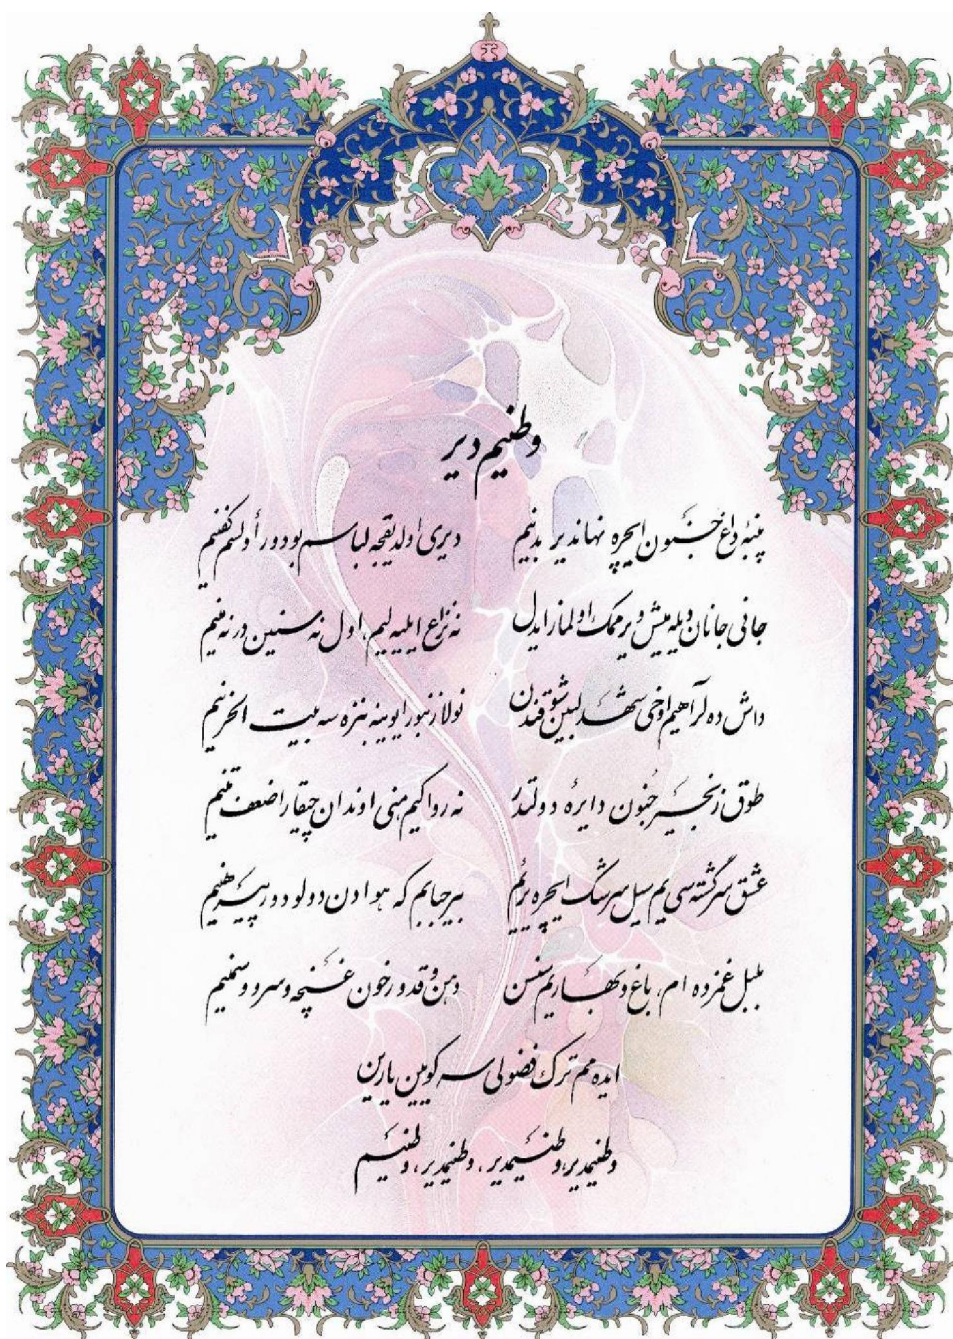 وطنیم دیر
پنبهٔ داغ جنون ایچره نهاندیر بدنیم دیری اولدیقجه لباسم بودور أولسم کفنیم
جانی جانان دیله میش ویرمک اولماز ای دل نه نزاع ایلیه لیم، اول نه سنین در نه منیم
داش ده لر آهیم اوخی شهد لبین شوقندن نولا زنبور ایوینه بنزه سه بیت الحزنیم
طوق زنجیر جنون دایرهٔ دولتدر نه روا کیم منی اوندان چیقارا ضعف تنیم
عشق سرگشته سی یم سیل سرشک ایچره یریم بیر حبابم که هوادن دولودور پیرهنیم
بلبل غمزده ام، باغ و بهاریم سنسن دهن و قد و رخون غنچه و سرو و سمنیم
ایده مم ترک فضولی سر کویین یارین
وطنیمدیر، وطنیمدیر، وطنیمدیر، وطنیم